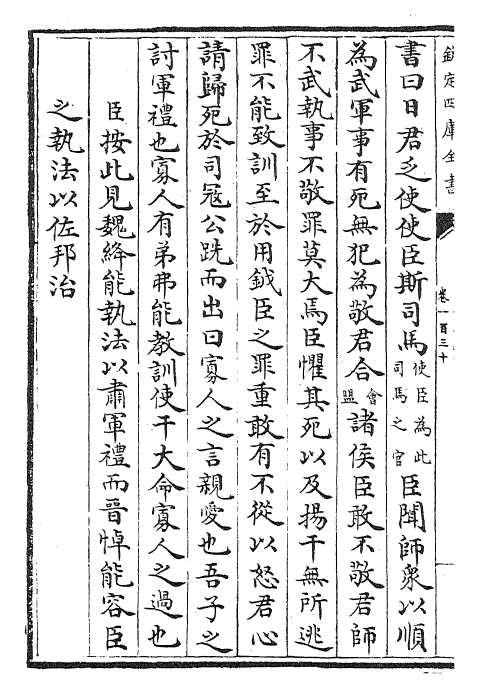 欽定四庫全書
卷一百三十
書曰日君乏使使臣斯司馬使臣為此司馬之官臣聞師衆以順
為武軍事有死無犯為敬君合會盟諸侯臣敢不敬君師
不武執事不敬罪莫大焉臣懼其死以及揚干無所逃
罪不能致訓至於用鉞臣之罪重敢有不從以怒君心
請歸死於司冦公跣而出曰寡人之言親愛也吾子之
討軍禮也寡人有弟弗能教訓使干大命寡人之過也
臣按此見魏絳能執法以肅軍禮而晉悼能容臣
之執法以佐邦治